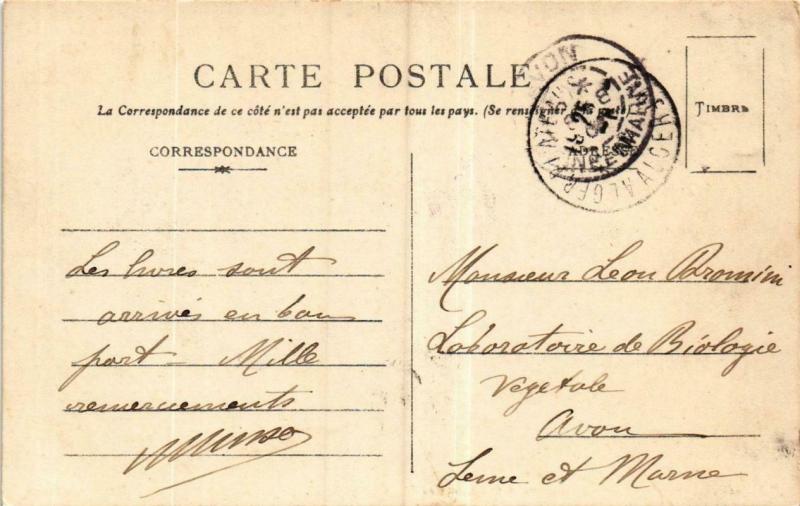 CARTE POSTALE
La Correspondance de ce côté n'est pas acceptée par tous les pays. (Se renseigner
CORRESPONDANCE
TIMBRE
Les livres sont
arrivés en bon
port - Mille
remerciements
Monsieur Leon Bromini
Laboratoire de Biologie
Vegetale
Avon
Seine et Marne
AVON
SEINE ET MARNE
ALGER